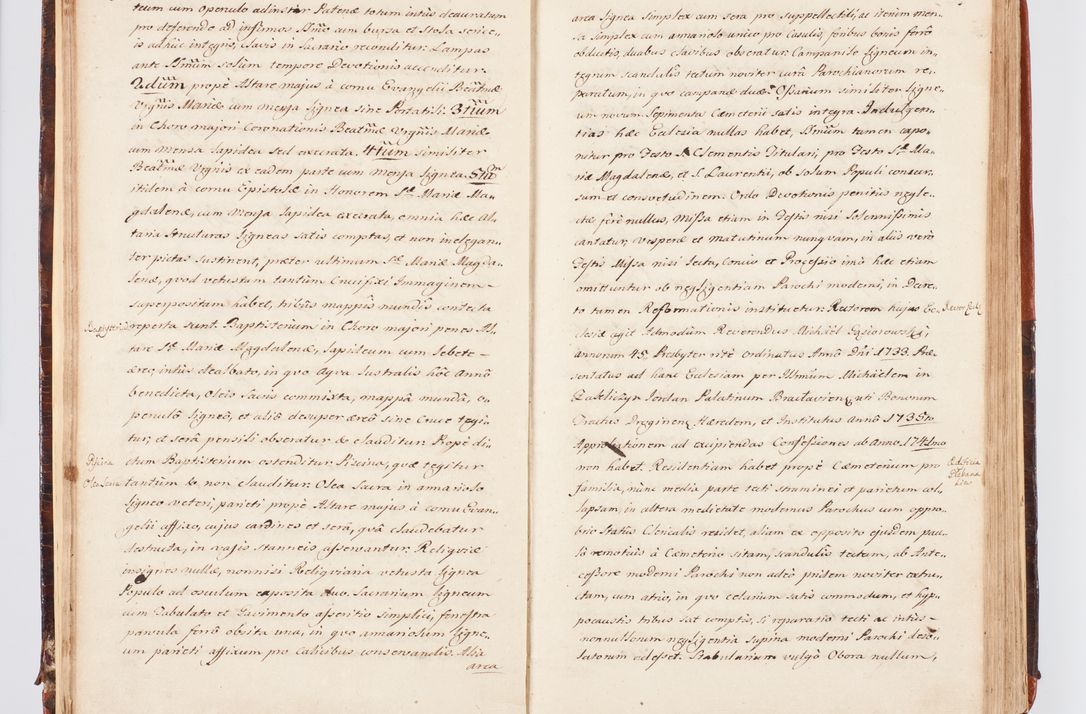 teum cum operculo ad instar Patenæ totum intus deauratum
pro deferendo ad infirmos SSmo cum bursa et Stola serice,
is adhuc integris, clavis in Sacrario reconditur. Lampas
ante SSmum solum tempore Devotionis accenditur.
2dum propè Altare majus à cornu Evangelii Beatmæ
Virgnis Mariæ cum mensa lignea sine Portatili. 3tium
in Choro majori Coronationis Beatmæ Virgnis Mariæ
cum Mensa lapidea sed execrata. 4tum similiter
Beatmæ Virgnis ex eadem parte cum mensa lignea. 5tum
itidem à cornu Epistolæ in Honorem Stæ Mariæ Ma,
gdalenæ, cum Mensa lapidea execrata, omnia hæc Al,
taria structuras ligneas satis comptas, et non inelegan,
ter pictas sustinent, præter ultimum Stæ Mariæ Magda,
lenæ, quod vetustum tantùm Crucifixi Immaginem
superpositam habet, tribus mappis mundis contecta
Baptisterium
reperta sunt. Baptisterium in Choro majori penes Al,
tare Stæ Mariæ Magdalenæ, lapideum cum Lebete
æreo, intus dealbato, in quo Aqua lustralis hoc Anno
benedicta, Oleis Sacris commixta, mappâ mundâ, o,
perculo ligneo, et alio desuper æreo sine Cruce tegi,
tur, et serâ pensili obseratur & clauditur. Propè di,
Piscina
ctum Baptisterium ostenditur Piscina, quæ tegitur
Olea Sacra
tantùm & non clauditur. Olea Sacra in armariolo
ligneo veteri, parieti propè Altare majus à cornu Evan,
gelii affixo, cujus cardines et sera, quâ claudebatur
destructa, in vasis stanneis asservantur. Reliquiæ
insignes nullæ, nonnisi Reliquiaria vetusta lignea
Populo ad osculum exposita duo. Sacrarium ligneum
cum Tabulato et Pavimento asseritio simplici, fenestra
parvula ferrô obsita una, in quo armariolum ligne,
um parieti affixum pro Calicibus conservandis. Alia
arca
arca lignea simplex cum sera pro suppellectili, ac itidem men,
sa simplex cum armariolo unico pro Casulis, foribus bonis ferro
obductis, duabus clavibus obseratur. Campanile ligneum in,
tegrum scandulis tectum noviter curâ Parochianorum re,
paratum, in quo campanæ duæ. Ossarium similiter ligne,
um novum. Sepimenta Cæmeterii satis integra. Indulgen,
tias hæc Ecclesia nullas habet, SSmum tamen expo,
nitur pro Festo S. Clementis Titulari, pro Festo Stæ Ma,
riæ Magdalenæ, et S. Laurentii, ob solum Populi concur,
sum et consvetudinem. Ordo Devotionis penitus negle,
ctæ ferè nullus, Missa etiam in Festis nisi Solennissimis
cantatur, Vesperæ et Matutinum nunquam, in aliis verò
Festis Missa nisi lecta, Concio et Processio imò hæc etiam
omittuntur ob negligentiam Parochi moderni, in Decre,
to tamen Reformationis instituetur. Rectorem hujus Ec,
Rector Eccl.
clesiæ agit Admodùm Reverendus Michaël Gąsiorowski,
annorum 45. Presbyter ritè ordinatus Annô Dni 1733. Præ,
sentatus ad hanc Ecclesiam per Illmum Michaëlem in
Zakliczyn Jordan Palatinum Braclavien, uti Bonorum
Tractus Dreginen, Hæredem, et Institutus Annô 1735to
Approbationem ad excipiendas Confessiones ab Anno 1741mo
non habet. Residentiam habet propè Cæmeterium pro
Ædificia
Plebana
lia
familia, nunc media parte tecti straminei et parietum col,
lapsam, in altera medietate modernus Parochus cum oppro,
brio Statûs Clericalis residet, aliam ex opposito ejusdem pau,
lò remotius à Cæmeterio sitam, scandulis tectam, ab Ante,
cessore moderni Parochi non adeò pridem noviter extru,
ctam, cum atrio, in quo celarium satis commodum, et hyp,
pocaustis tribus sat comptis, si reparatio tecti ac intus
nonnullorum negligentia supina moderni Parochi deso,
latorum adesset. Stabularium vulgò Obora nullum,